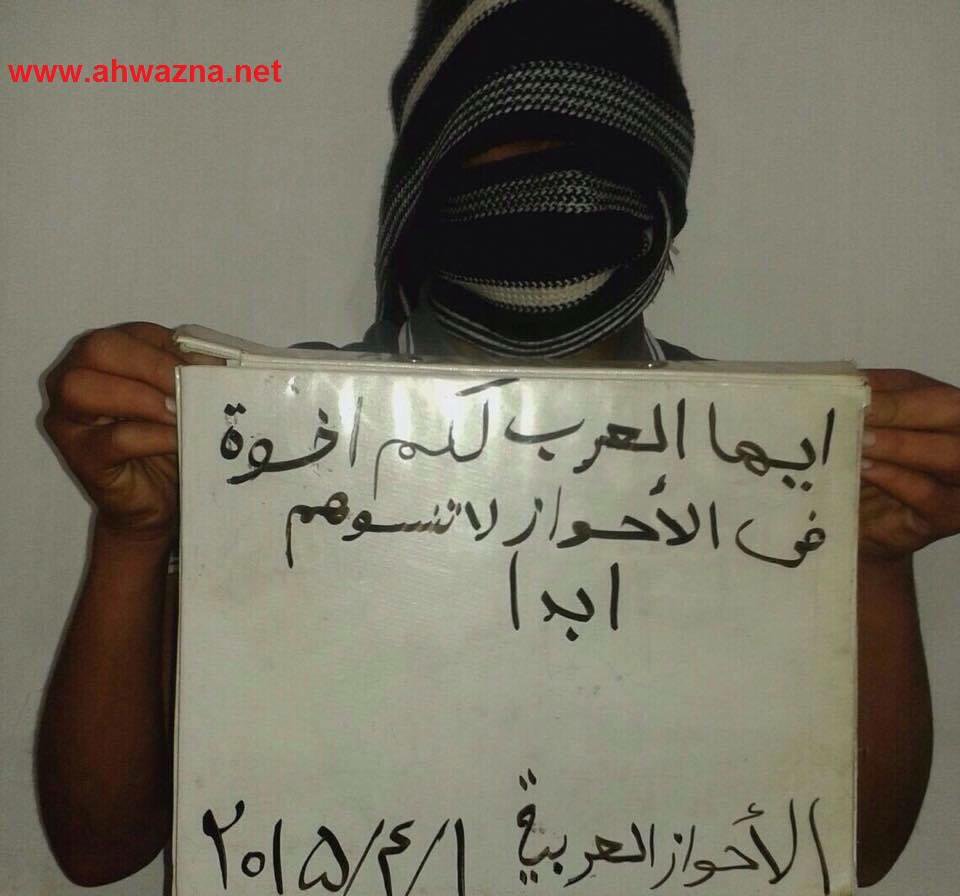 www.ahwazna.net
ايها العرب لكم اخوة
في الأحواز لا تنسوهم
ابدا
الأحواز العربية
٢٠١٥/٤/١